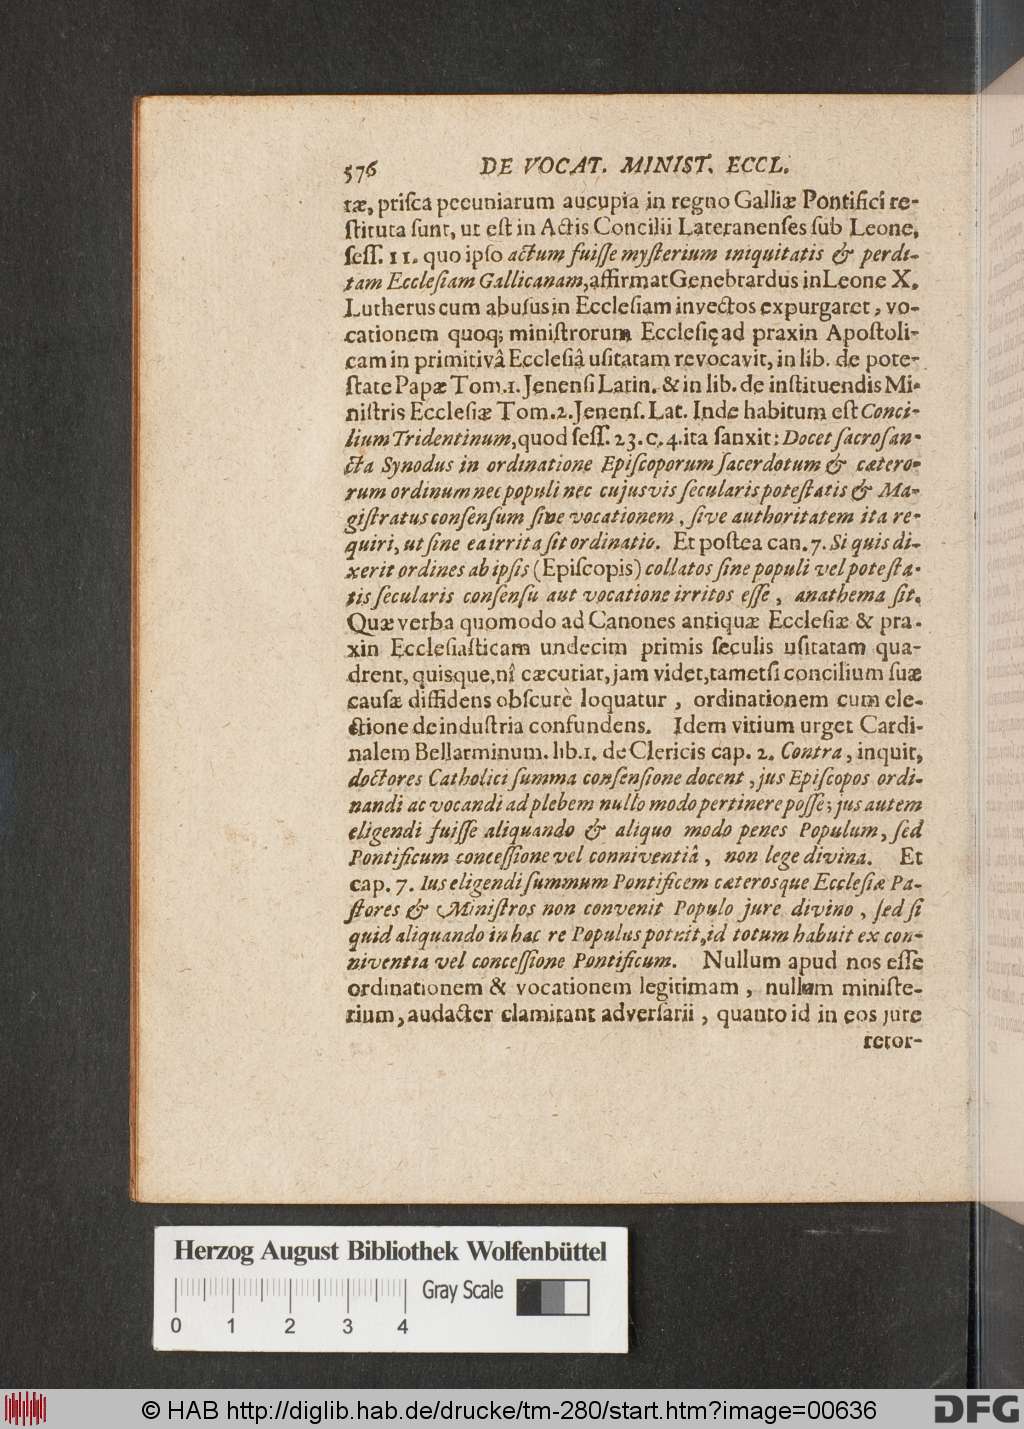 576 DE VOCAT. MINIST. ECCL.
tæ, priſca pecuniarum aucupia in regno Galliæ Pontifici re-
ſtituta ſunt, ut eſt in Actis Concilii Lateranenſes ſub Leone,
ſeſſ. 11. quo ipſo actum fuiſſe myſterium iniquitatis & perdi-
tam Eccleſiam Gallicanam, affirmat Genebrardus in Leone X.
Lutherus cum abuſus in Eccleſiam invectos expurgaret, vo-
cationem quoq; miniſtrorum Eccleſię ad praxin Apoſtoli-
cam in primitivâ Eccleſiâ uſitatam revocavit, in lib. de pote-
ſtate Papæ Tom.1. Jenenſi Latin. & in lib. de inſtituendis Mi-
niſtris Eccleſiæ Tom.2. Jenenſ. Lat. Inde habitum eſt Conci-
lium Tridentinum, quod ſeſſ. 23. c. 4. ita ſanxit: Docet ſacroſan-
cta Synodus in ordinatione Epiſcoporum ſacerdotum & cætero-
rum ordinum nec populi nec cujusvis ſecularis poteſtatis & Ma-
giſtratus conſenſum ſive vocationem, ſive authoritatem ita re-
quiri, ut ſine ea irrita ſit ordinatio. Et poſtea can. 7. Si quis di-
xerit ordines ab ipſis (Epiſcopis) collatos ſine populi vel poteſta-
tis ſecularis conſenſu aut vocatione irritos eſſe, anathema ſit.
Quæ verba quomodo ad Canones antiquæ Eccleſiæ & pra-
xin Eccleſiaſticam undecim primis ſeculis uſitatam qua-
drent, quisque, nî cæcutiat, jam videt, tametſi concilium ſuæ
cauſæ diffidens obſcurè loquatur, ordinationem cum ele-
ctione de induſtria confundens. Idem vitium urget Cardi-
nalem Bellarminum. lib.1. de Clericis cap. 2. Contra, inquit,
doctores Catholici ſumma conſenſione docent, jus Epiſcopos ordi-
nandi ac vocandi ad plebem nullo modo pertinere poſſe; jus autem
eligendi fuiſſe aliquando & aliquo modo penes Populum, ſed
Pontificum conceſſione vel conniventiâ, non lege divina. Et
cap. 7. Ius eligendi ſummum Pontificem cæterosque Eccleſiæ Pa-
ſtores & Miniſtros non convenit Populo jure divino, ſed ſi
quid aliquando in hac re Populus potuit, id totum habuit ex con-
niventia vel conceſſione Pontificum. Nullum apud nos eſſe
ordinationem & vocationem legitimam, nullum miniſte-
rium, audacter clamitant adverſarii, quanto id in eos jure
retor-
Herzog August Bibliothek Wolfenbüttel
Gray Scale
0 1 2 3 4
© HAB http://diglib.hab.de/drucke/tm-280/start.htm?image=00636
DFG